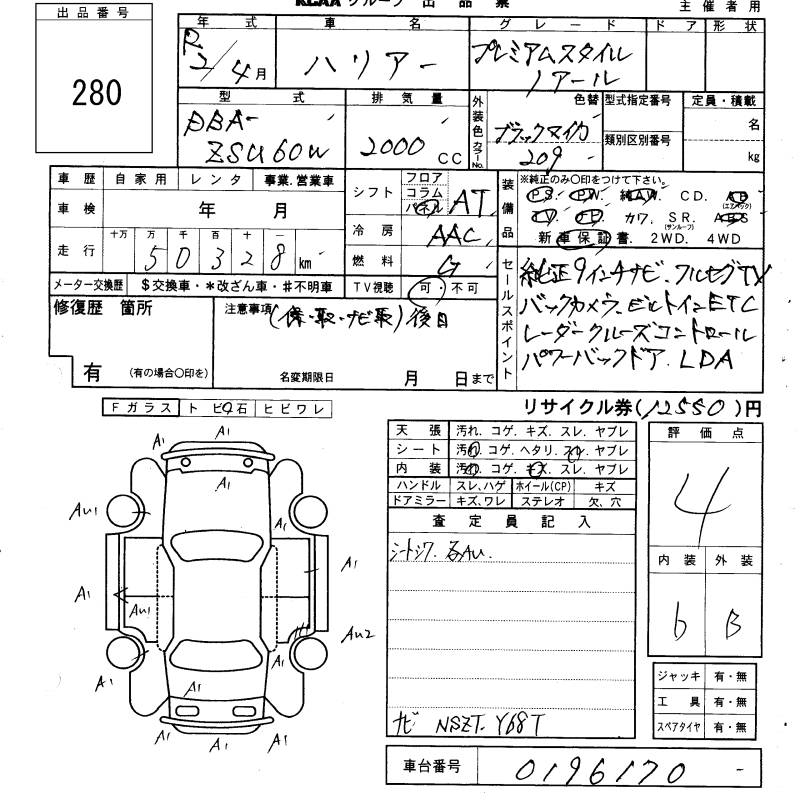 KCAA グループ 出 品 票
主 催 者 用
出 品 番 号
280
年 式
車 名
グ レ ー ド
ド ア
形 状
R2/4月
ハリアー
プレミアムスタイル
ノアール
型 式
排 気 量
外装色 カラーNo.
色替
型式指定番号
定員・積載
DBA-
ZSU60W
2000 CC
ブラックマイカ
209
類別区別番号
名
kg
車 歴
自 家 用
レ ン タ
事業.営業車
シフト
フロア
コラム
パネル
AT
装備品
※純正のみ○印をつけて下さい。
PS. PW. 純AW. CD. AB
(エアバック)
TV. ナビ. カワ. SR. ABS
(サンルーフ)
新車保証書. 2WD. 4WD
車 検
年 月
冷 房
AAC
走 行
十万 万 千 百 十 一
50328 km
燃 料
G
メーター交換歴
$交換車・*改ざん車・#不明車
TV視聴
可・不可
セールスポイント
純正9インチナビ. フルセグTV
バックカメラ. ビルトインETC
レーダークルーズコントロール
パワーバックドア. LDA
修復歴 箇所
注意事項
(保・取・ナビ取) 後日
有 (有の場合○印を)
名変期限日 月 日まで
リサイクル券(12550)円
F ガラス
ト ビ 石
ヒビワレ
A1
A1
A1
A1
AU1
A1
A1
A1
AU1
AU2
A1
A1
A1
A1
A1
A1
天 張
汚れ. コゲ. キズ. スレ. ヤブレ
シート
汚れ. コゲ. ヘタリ. スレ. ヤブレ
内 装
汚れ. コゲ. キズ. スレ. ヤブレ
ハンドル
スレ、ハゲ
ホイール(CP)
キズ
ドアミラー
キズ、ワレ
ステレオ
欠、穴
査 定 員 記 入
シートシワ. 各AU.
ナビ NSZT-Y68T
評 価 点
4
内 装
外 装
6
B
ジャッキ
有・無
工 具
有・無
スペアタイヤ
有・無
車台番号
0196170